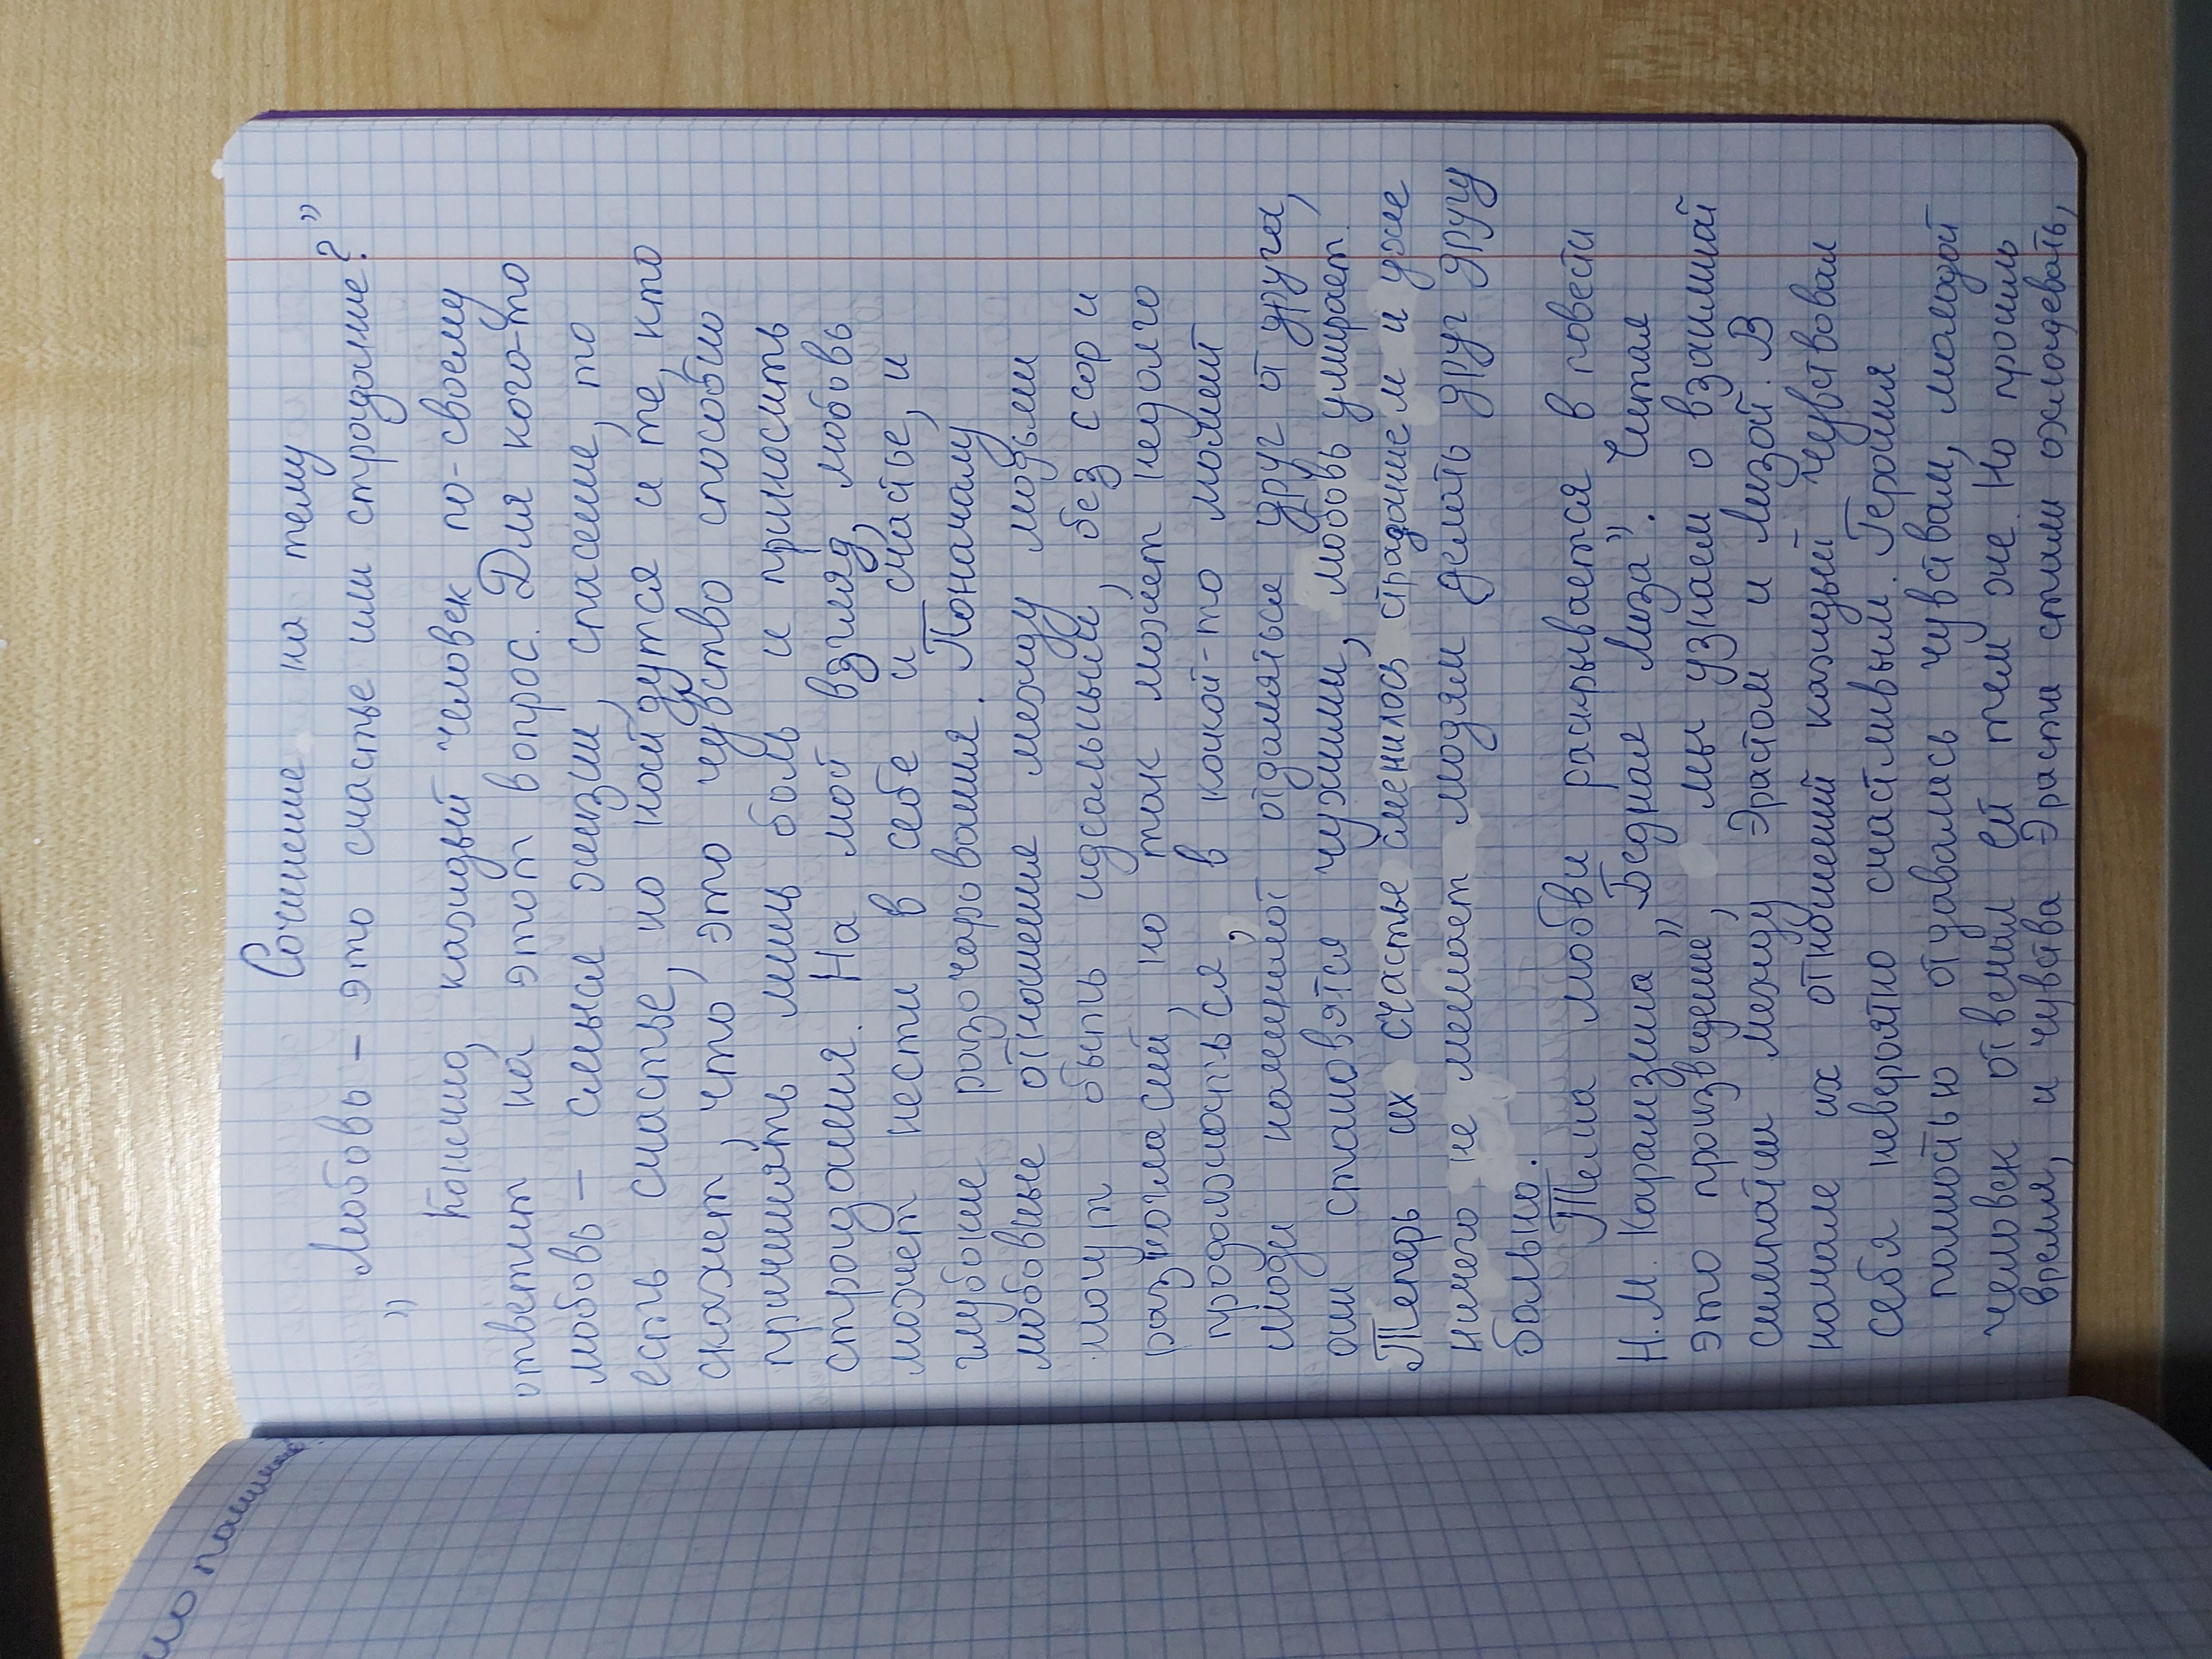 Сочинение на тему
„Любовь – это счастье или страдание?”
Конечно, каждый человек по-своему
ответит на этот вопрос. Для кого-то
любовь – смысл жизни, спасение, то
есть счастье, но найдутся и те, кто
скажет, что это чувство способно
причинять лишь боль и приносить
страдания. На мой взгляд, любовь
может нести в себе и счастье, и
глубокие разочарования. Поначалу
любовные отношения между людьми
могут быть идеальными, без ссор и
разногласий, но так может недолго
продолжаться, в какой-то момент
люди начинают отдаляться друг от друга,
они становятся чужими, любовь умирает.
Теперь их счастье сменилось страданием и уже
ничего не мешает людям делать друг другу
больно.
Тема любви раскрывается в повести
Н.М. Карамзина „Бедная Лиза”. Читая
это произведение, мы узнаем о взаимной
симпатии между Эрастом и Лизой. В
начале их отношений каждый чувствовал
себя невероятно счастливым. Героиня
полностью отдавалась чувствам, молодой
человек отвечал ей тем же. Но прошло
время, и чувства Эраста стали охладевать,